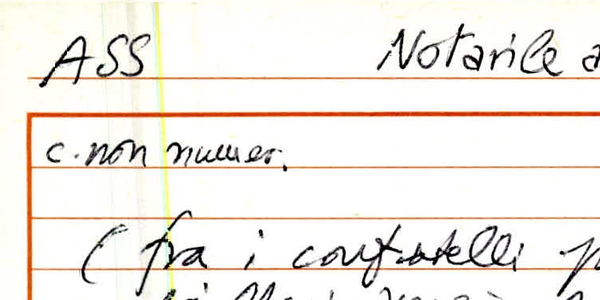 ASS Notarile a
c. non numer.
( fra i confratelli p